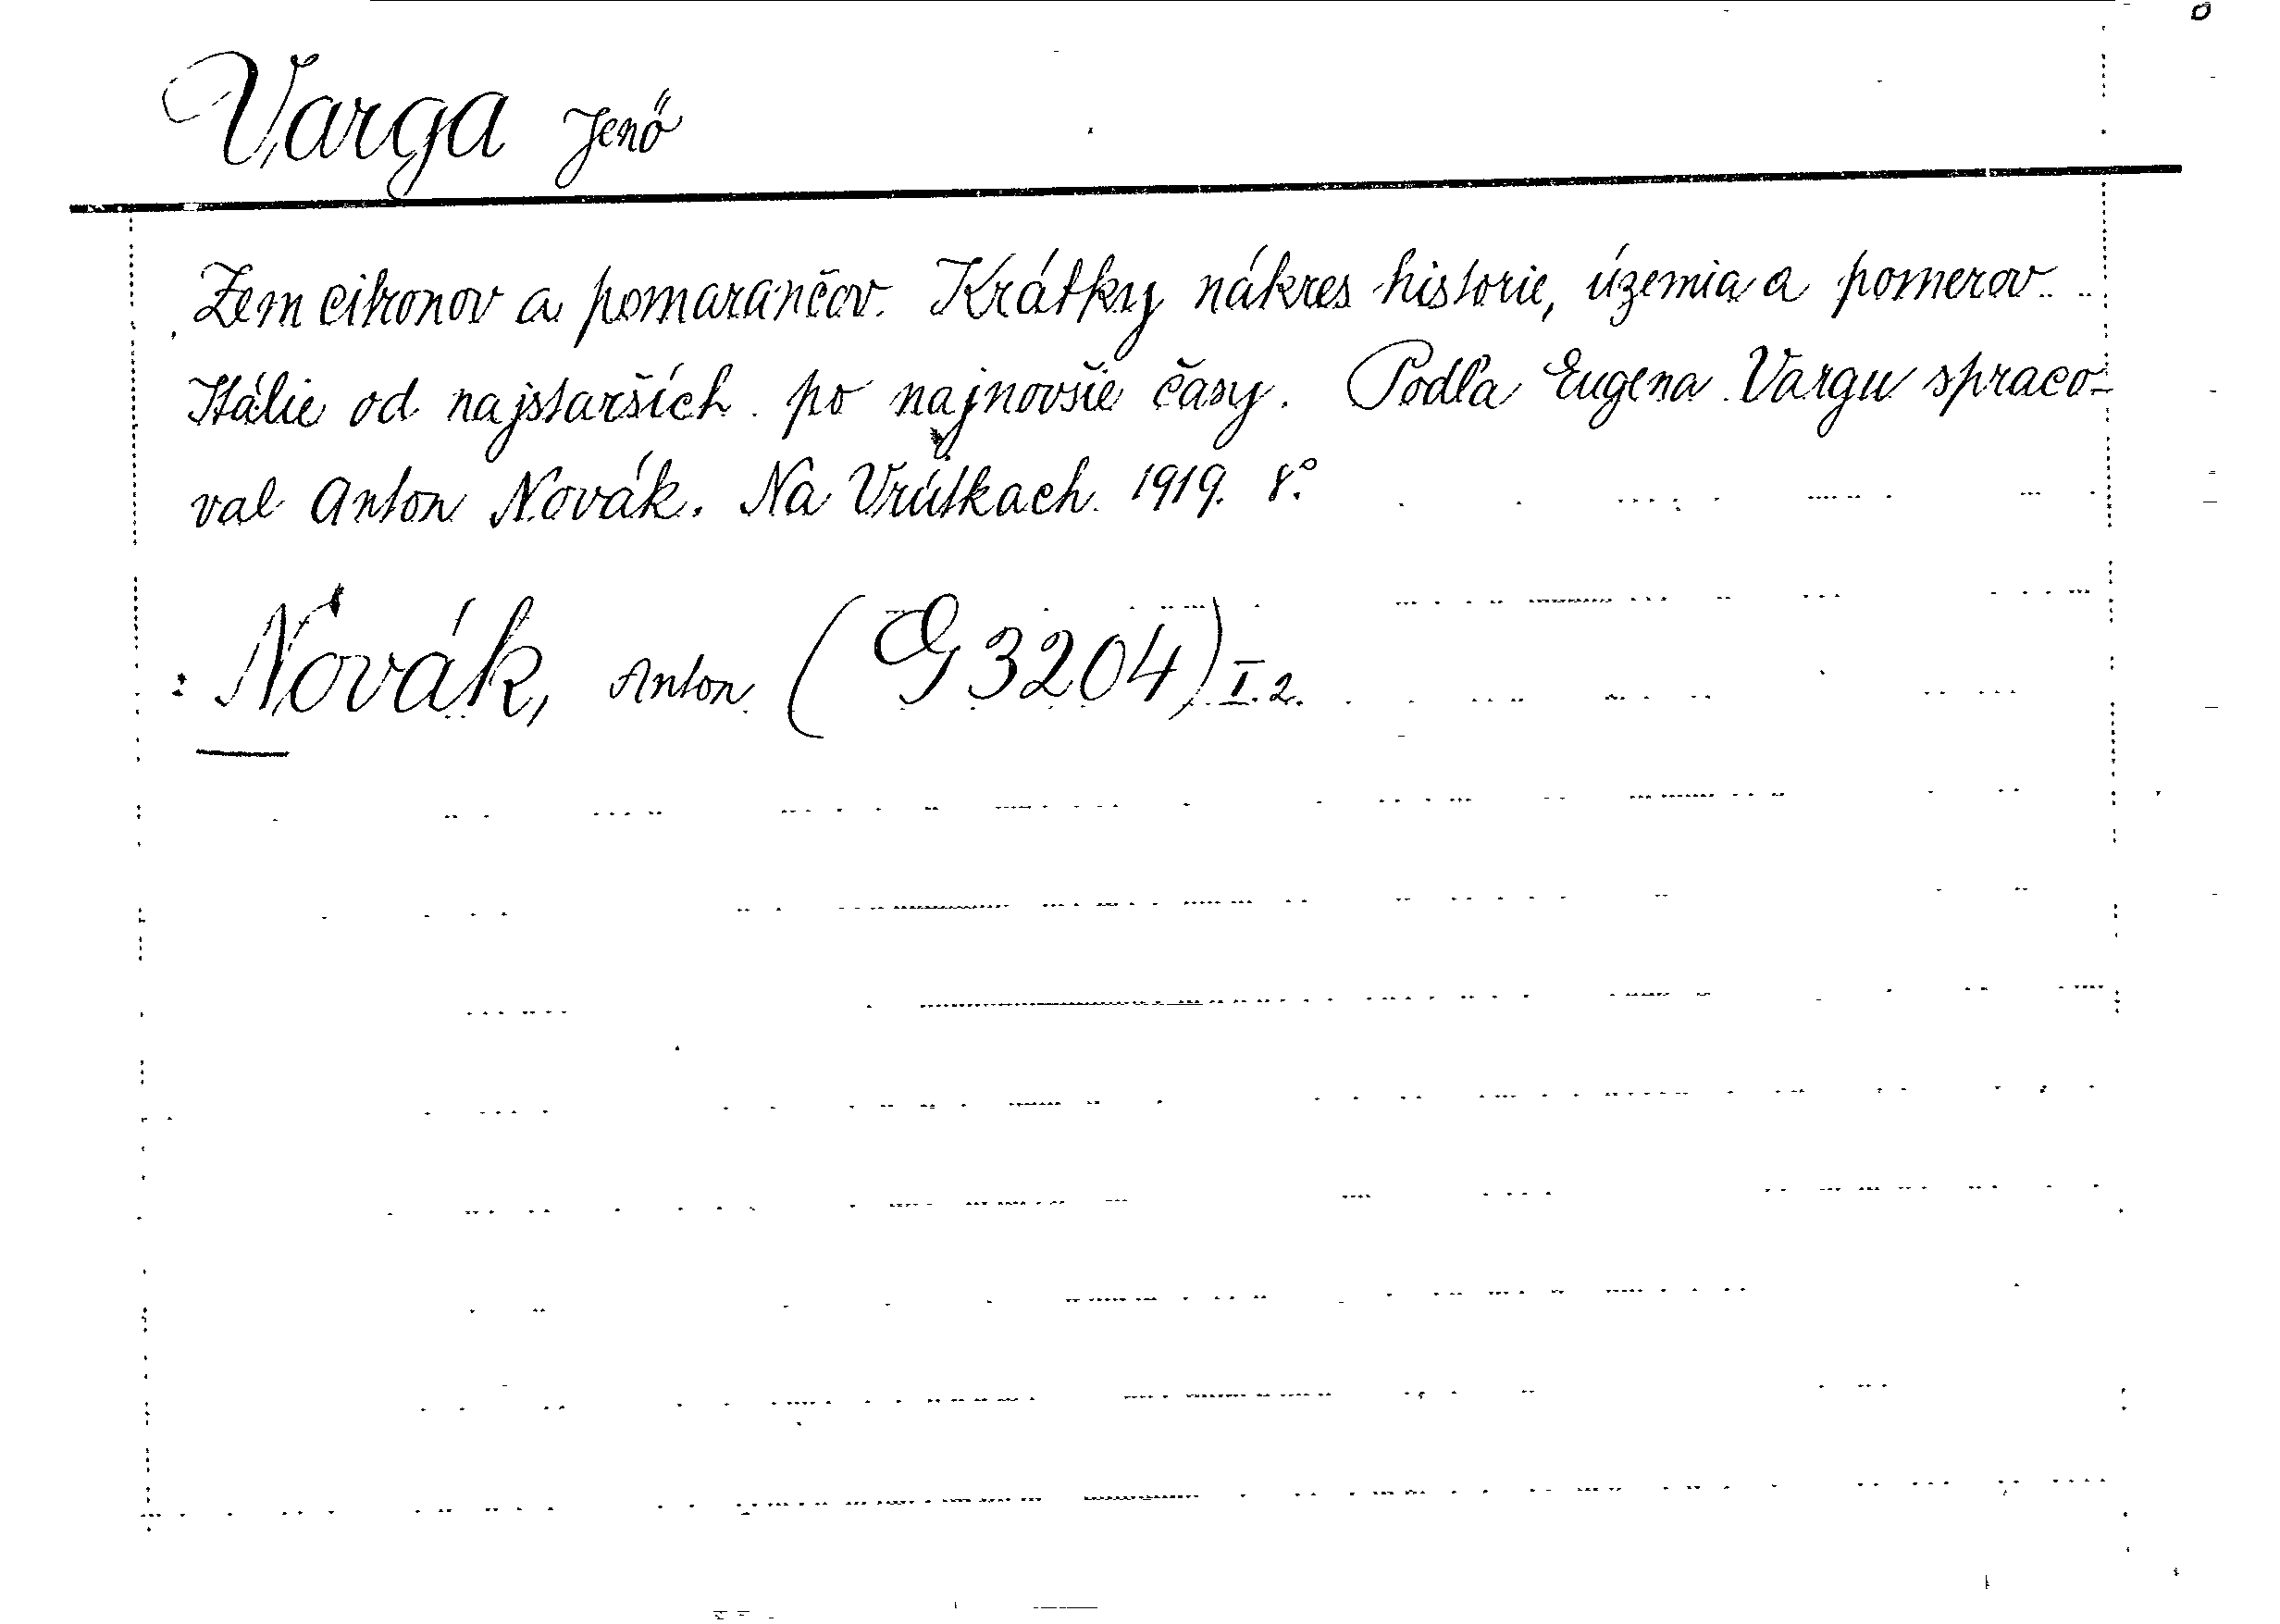 Varga Jenő
Zem citronov a pomarančov. Krátky nákres historie, územia a pomerov
Itálie od najstarších po najnovšie časy. Podľa Eugena Vargu spraco-
val Anton Novák. Na Vrútkach. 1919. 8°.
: Novák, Anton (G 3204) I. 2.